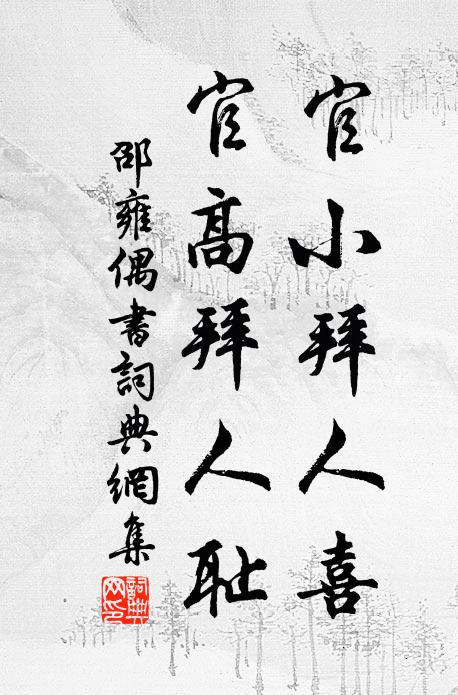 官小拜人喜
官高拜人耻
邵雍偶書詞典網集